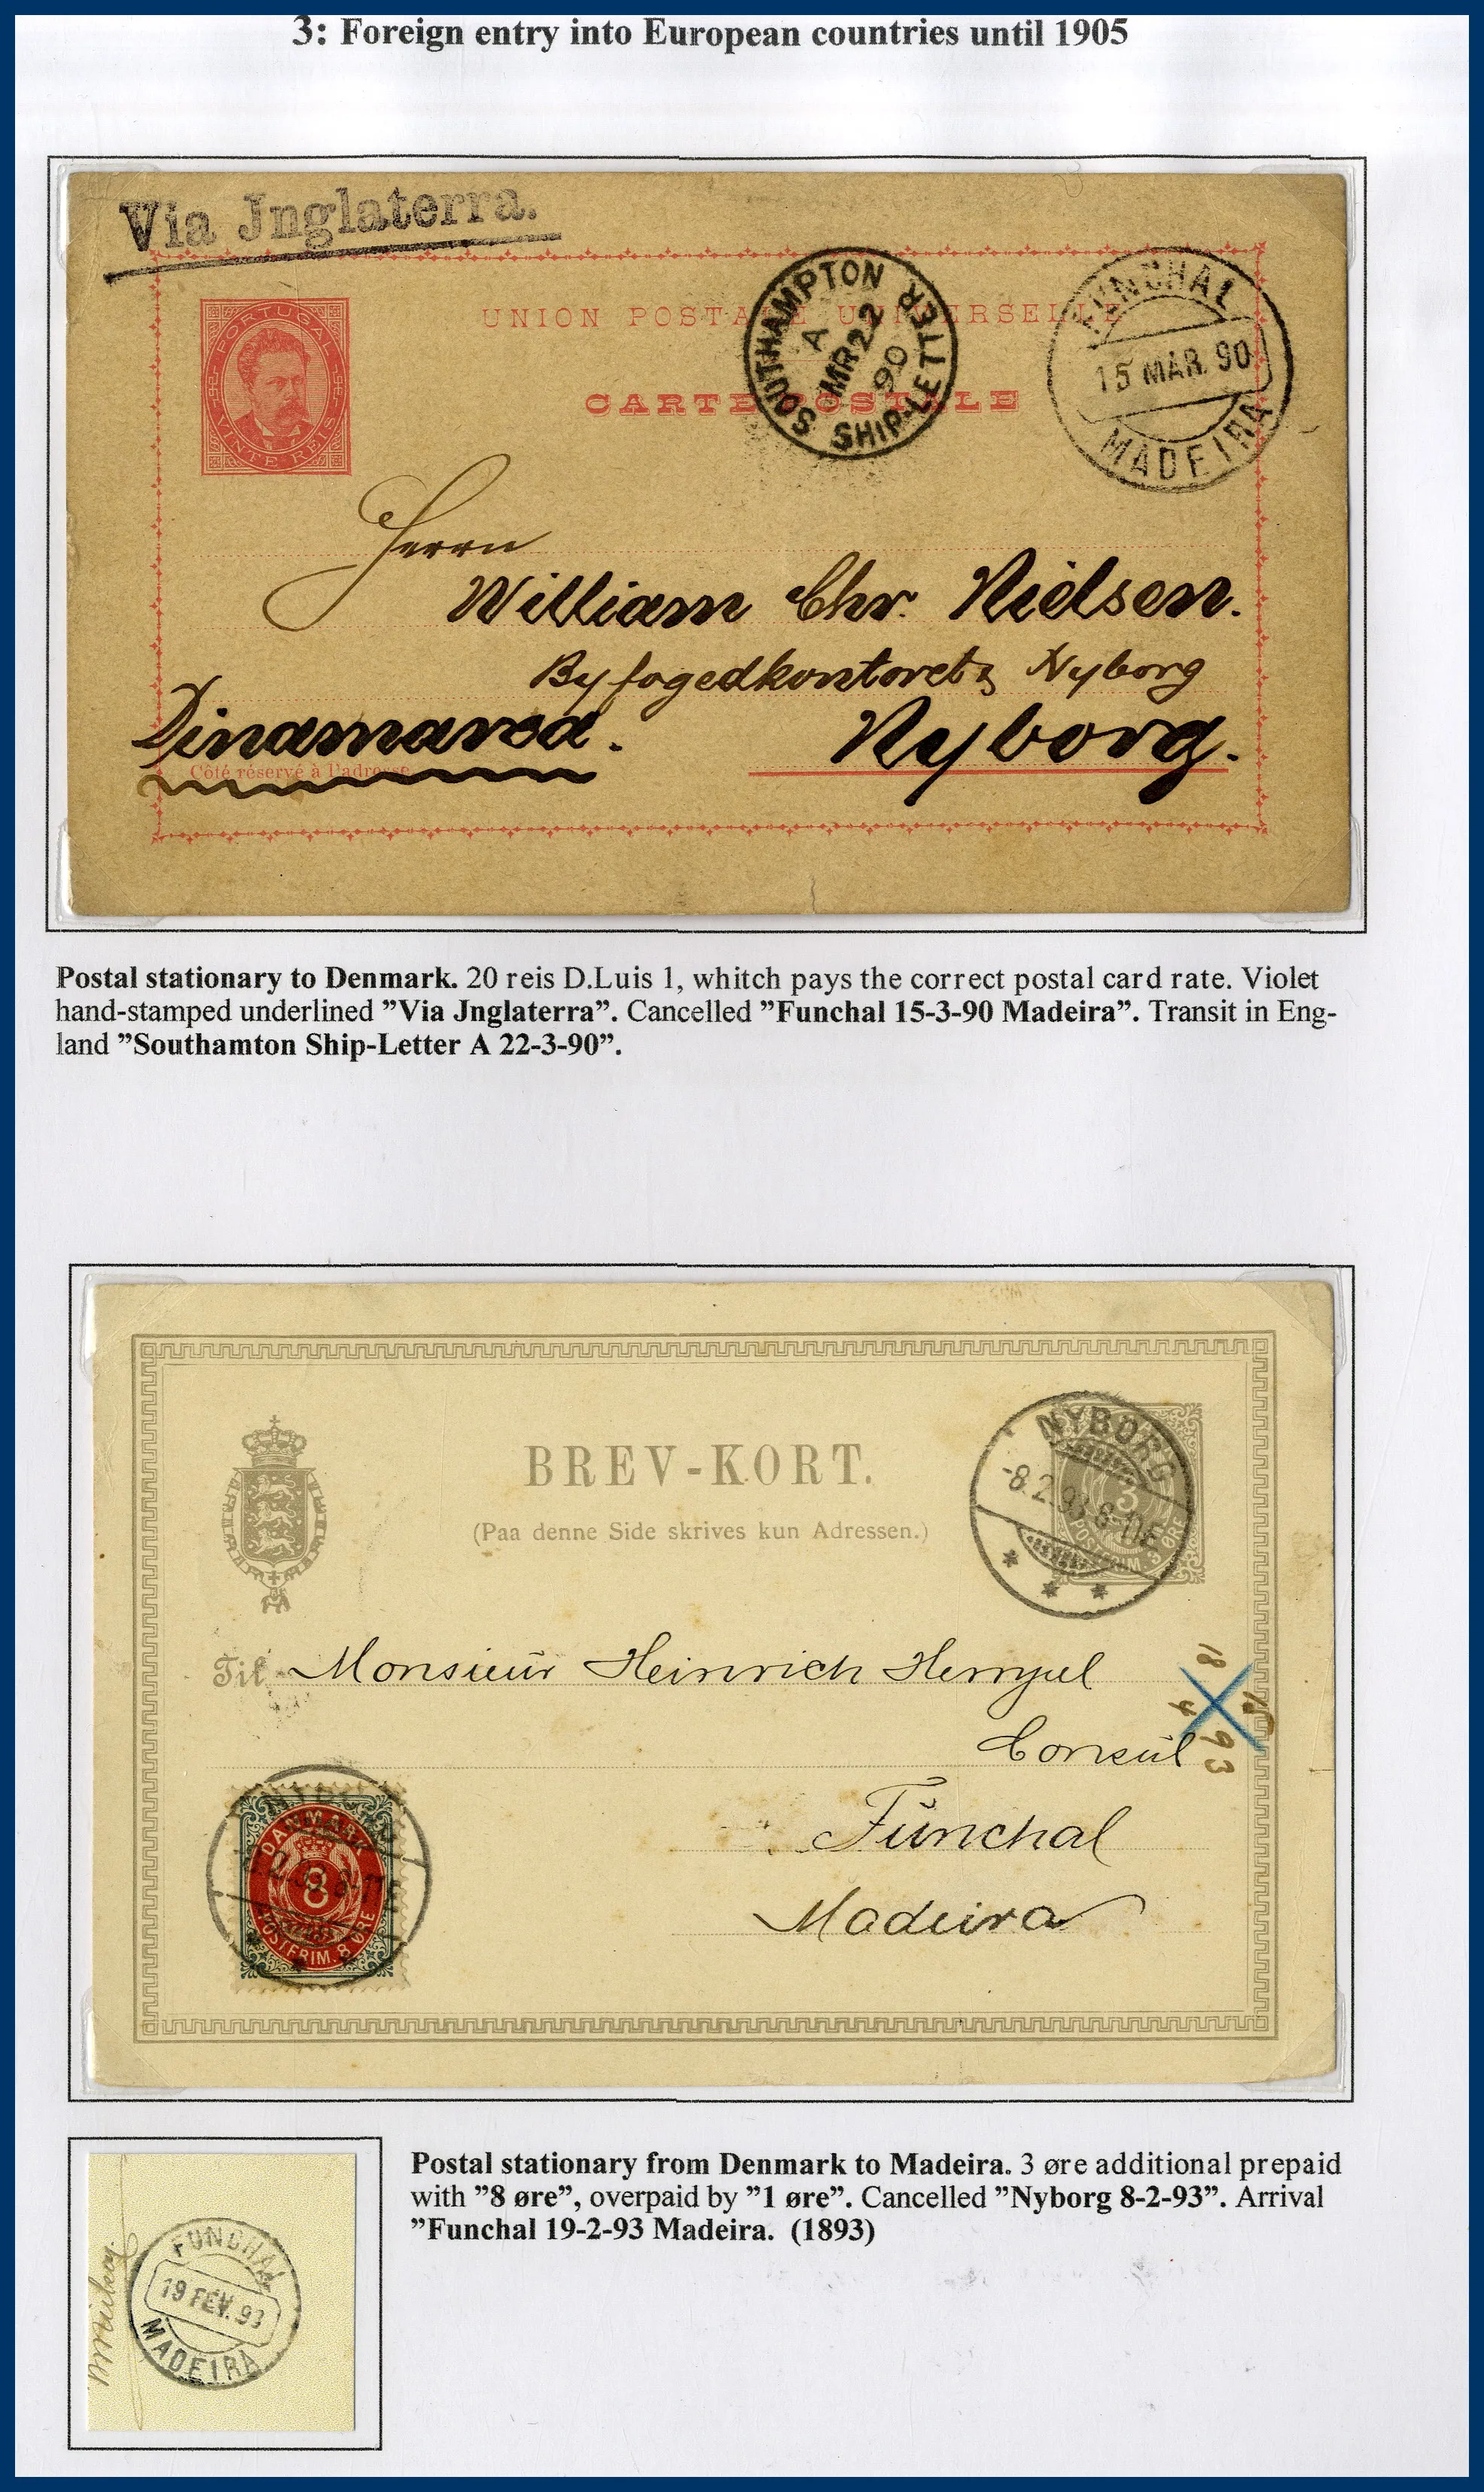 3: Foreign entry into European countries until 1905
Via Jnglaterra.
PORTUGAL
VINTE REIS
UNION POSTALE UNIVERSELLE
CARTE POSTALE
SOUTHAMPTON
A
MR 22
90
SHIP-LETTER
FUNCHAL
15 MAR. 90
MADEIRA
Herrn
William Chr. Nielsen.
Byfogedkontoret Nyborg
Dinamarca.
Nyborg.
Côté réservé à l'adresse
Postal stationary to Denmark. 20 reis D.Luis 1, whitch pays the correct postal card rate. Violet
hand-stamped underlined ”Via Jnglaterra”. Cancelled ”Funchal 15-3-90 Madeira”. Transit in Eng-
land ”Southamton Ship-Letter A 22-3-90”.
BREV-KORT.
(Paa denne Side skrives kun Adressen.)
NYBORG
-8.2.93 8-11
3
POSTFRIM. 3 ØRE
Til Monsieur Heinrich Hempel
Consul
Funchal
Madeira
18
4
93
DANMARK
8
POSTFRIM. 8 ØRE
Postal stationary from Denmark to Madeira. 3 øre additional prepaid
with ”8 øre”, overpaid by ”1 øre”. Cancelled ”Nyborg 8-2-93”. Arrival
”Funchal 19-2-93 Madeira. (1893)
FUNCHAL
19 FEV. 93
MADEIRA